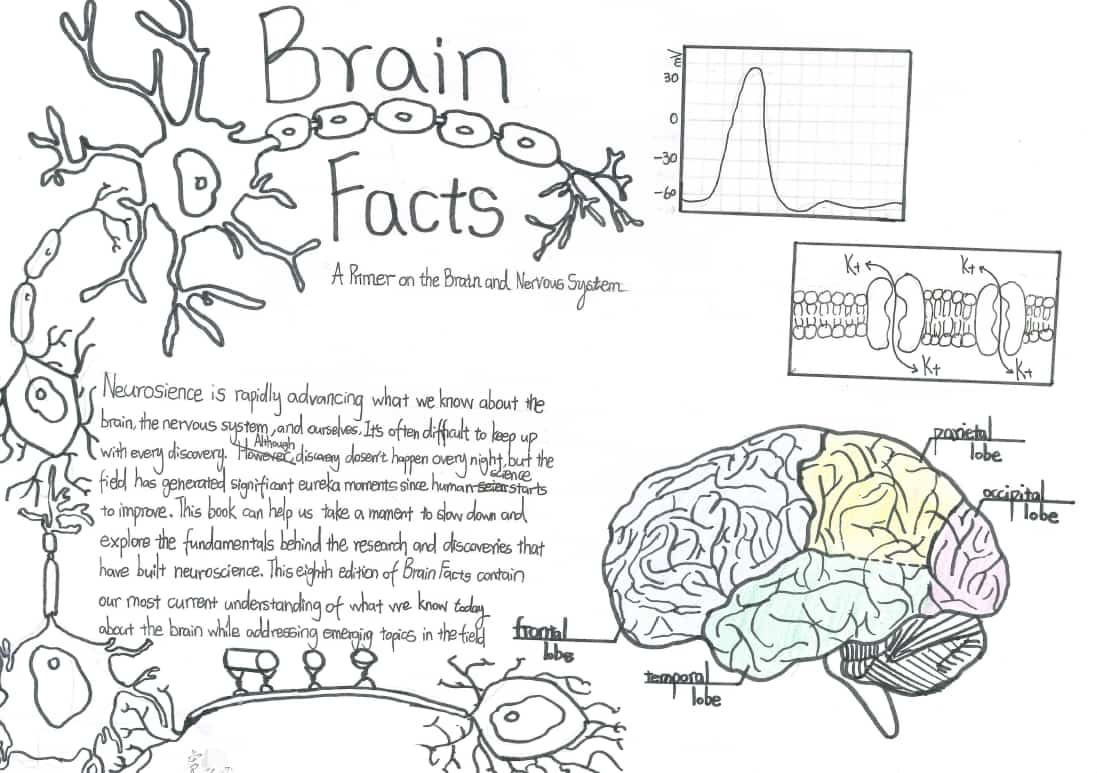 Brain
Facts
A Primer on the Brain and Nervous System
Neurosience is rapidly advancing what we know about the
brain, the nervous system, and ourselves. It's often difficult to keep up
with every discovery. However, Although discovery doesn't happen overy night, but the
field has generated significant eureka moments since human science starts
to improve. This book can help us take a moment to slow down and
explore the fundamentals behind the research and discoveries that
have built neuroscience. This eighth edition of Brain Facts contain
our most current understanding of what we know today
about the brain while addressing emerging topics in the field
30
0
-30
-60
K+ K+
K+ K+
parietal
lobe
occipital
lobe
frontal
lobe
temporal
lobe